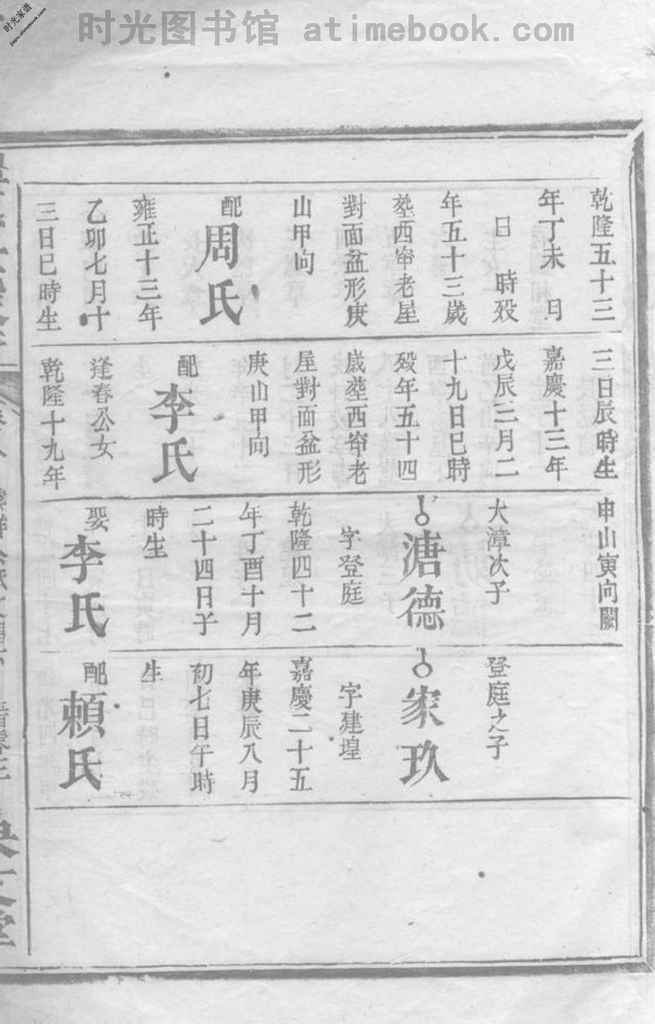 时光图书馆 atimebook.com
时光家谱
乾隆五十三
年丁未 月
日 時殁
年五十三歲
塟西窜老屋
對面盆形庚
山甲向
配
周氏
雍正十三年
乙卯七月十
三日巳時生
三日辰時生
嘉慶十三年
戊辰三月二
十九日巳時
殁年五十四
歲塟西窜老
屋對面盆形
庚山甲向
配
李氏
逢春公女
乾隆十九年
申山寅向闕
大漳次子
溏德
字登庭
乾隆四十二
年丁酉十月
二十四日子
時生
娶
李氏
登庭之子
家玖
字建埕
嘉慶二十五
年庚辰八月
初七日午時
生
配
賴氏